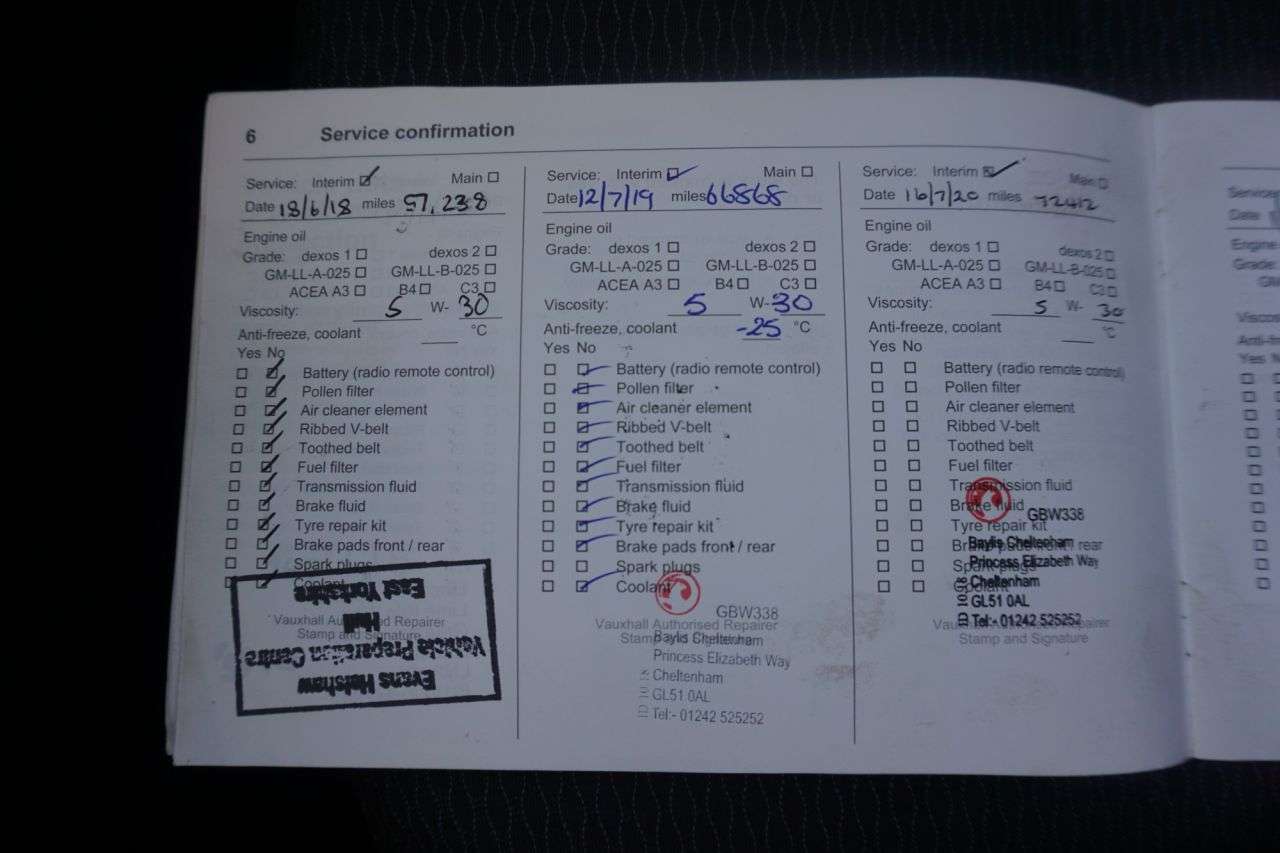 6 Service confirmation
Service: Interim Main
Date 18/6/18 miles 57,238
Engine oil
Grade: dexos 1 dexos 2
GM-LL-A-025 GM-LL-B-025
ACEA A3 B4 C3
Viscosity: 5 W- 30
Anti-freeze, coolant °C
Yes No
Battery (radio remote control)
Pollen filter
Air cleaner element
Ribbed V-belt
Toothed belt
Fuel filter
Transmission fluid
Brake fluid
Tyre repair kit
Brake pads front / rear
Spark plugs
Coolant
Vauxhall Authorised Repairer
Stamp and Signature
Evans Halshaw
Vehicle Preparation Centre
Hull
East Yorkshire
Service: Interim Main
Date 12/7/19 miles 66868
Engine oil
Grade: dexos 1 dexos 2
GM-LL-A-025 GM-LL-B-025
ACEA A3 B4 C3
Viscosity: 5 W- 30
Anti-freeze, coolant -25 °C
Yes No
Battery (radio remote control)
Pollen filter
Air cleaner element
Ribbed V-belt
Toothed belt
Fuel filter
Transmission fluid
Brake fluid
Tyre repair kit
Brake pads front / rear
Spark plugs
Coolant
GBW338
Vauxhall Authorised Repairer
Stamp and Signature
Baylis Cheltenham
Princess Elizabeth Way
Cheltenham
GL51 0AL
Tel:- 01242 525252
Service: Interim Main
Date 16/7/20 miles 72412
Engine oil
Grade: dexos 1 dexos 2
GM-LL-A-025 GM-LL-B-025
ACEA A3 B4 C3
Viscosity: 5 W- 30
Anti-freeze, coolant °C
Yes No
Battery (radio remote control)
Pollen filter
Air cleaner element
Ribbed V-belt
Toothed belt
Fuel filter
Transmission fluid
Brake fluid
Tyre repair kit
Brake pads front / rear
Spark plugs
Coolant
GBW338
Baylis Cheltenham
Princess Elizabeth Way
Cheltenham
GL51 0AL
Tel:- 01242 525252
Vauxhall Authorised Repairer
Stamp and Signature
Service
Date
Engine
Grade:
Yes